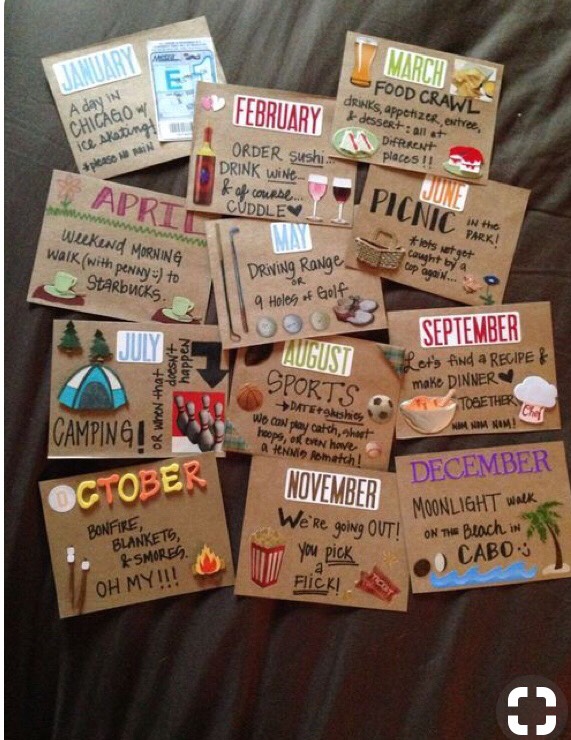 JANUARY
A day in
CHICAGO w/
ice skating!
*please no rain
E
FEBRUARY
ORDER sushi...
DRINK wine...
& of course...
CUDDLE
MARCH
FOOD CRAWL
drinks, appetizer, entree,
& dessert: all at
Different
places!!
APRIL
Weekend MORNING
Walk (with penny :) to
STARBUCKS.
MAY
DRIVING RANGE
OR
9 HOLES of Golf
JUNE
PICNIC IN THE
PARK!
*lets not get
caught by a
cop again...
JULY
CAMPING!
OR when that
doesn't
happen
AUGUST
SPORTS
DATE + slushies
We can play catch, shoot
hoops, or even have
a tennis rematch!
SEPTEMBER
Let's find a RECIPE &
make DINNER
TOGETHER
NOM NOM NOM!
Chef
OCTOBER
BONFIRE,
BLANKETS,
& SMORES.
OH MY!!!
NOVEMBER
We're going OUT!
you pick
a
FLICK!
TICKET
DECEMBER
MOONLIGHT walk
ON THE Beach in
CABO :)